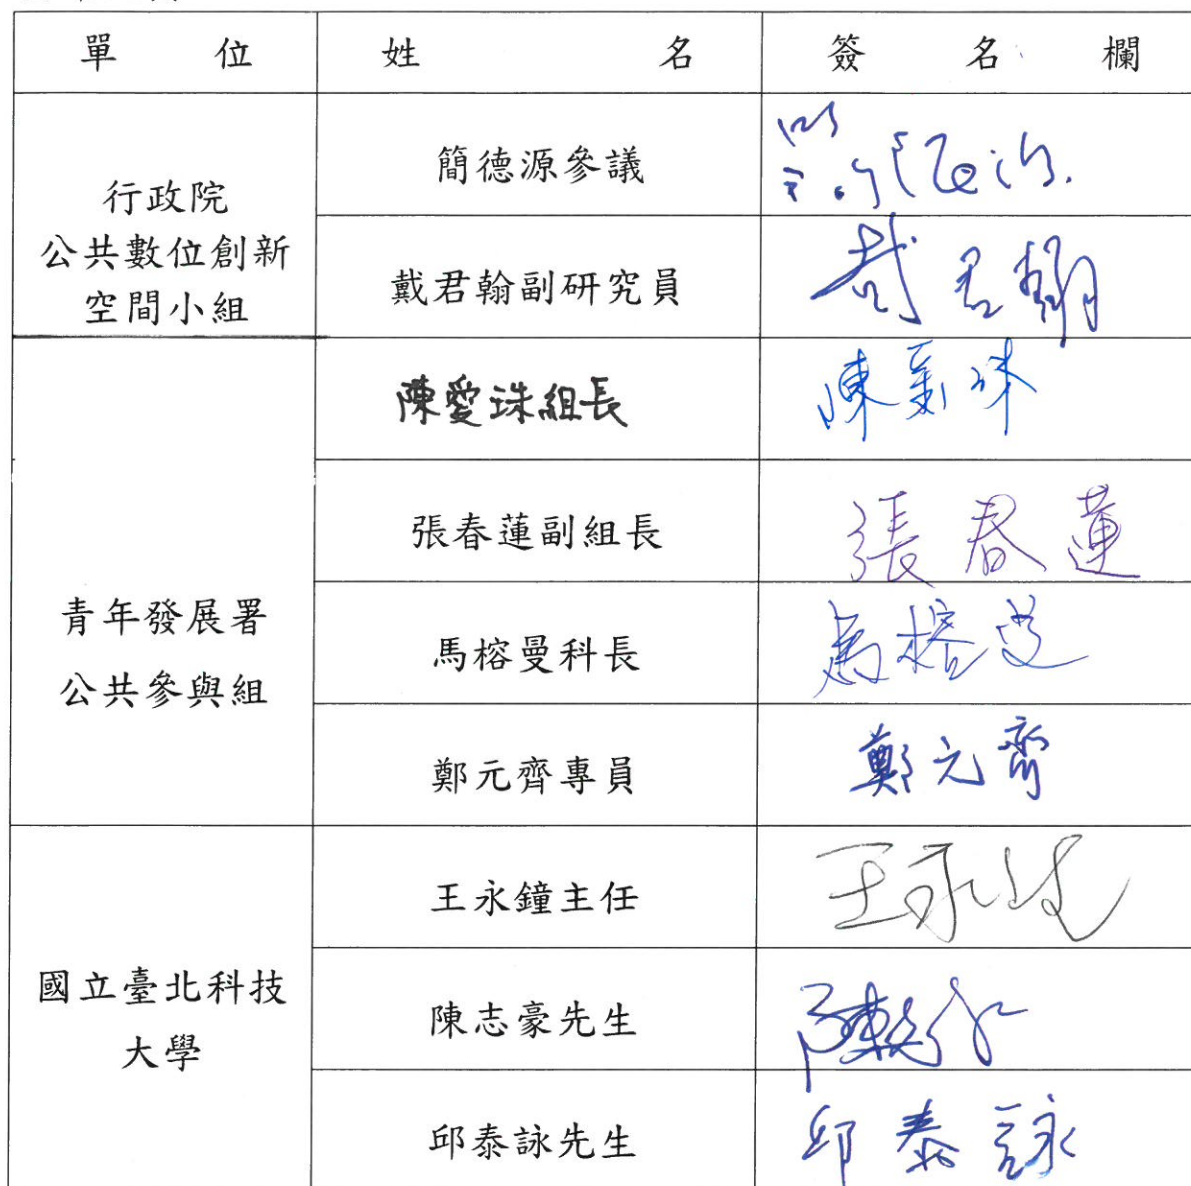 單 位 姓 名 簽 名 欄
行政院
公共數位創新
空間小組
簡德源參議
戴君翰副研究員
戴君翰
青年發展署
公共參與組
陳愛珠組長
陳愛珠
張春蓮副組長
張春蓮
馬榕曼科長
馬榕曼
鄭元齊專員
鄭元齊
國立臺北科技
大學
王永鐘主任
王永鐘
陳志豪先生
邱泰詠先生
邱泰詠